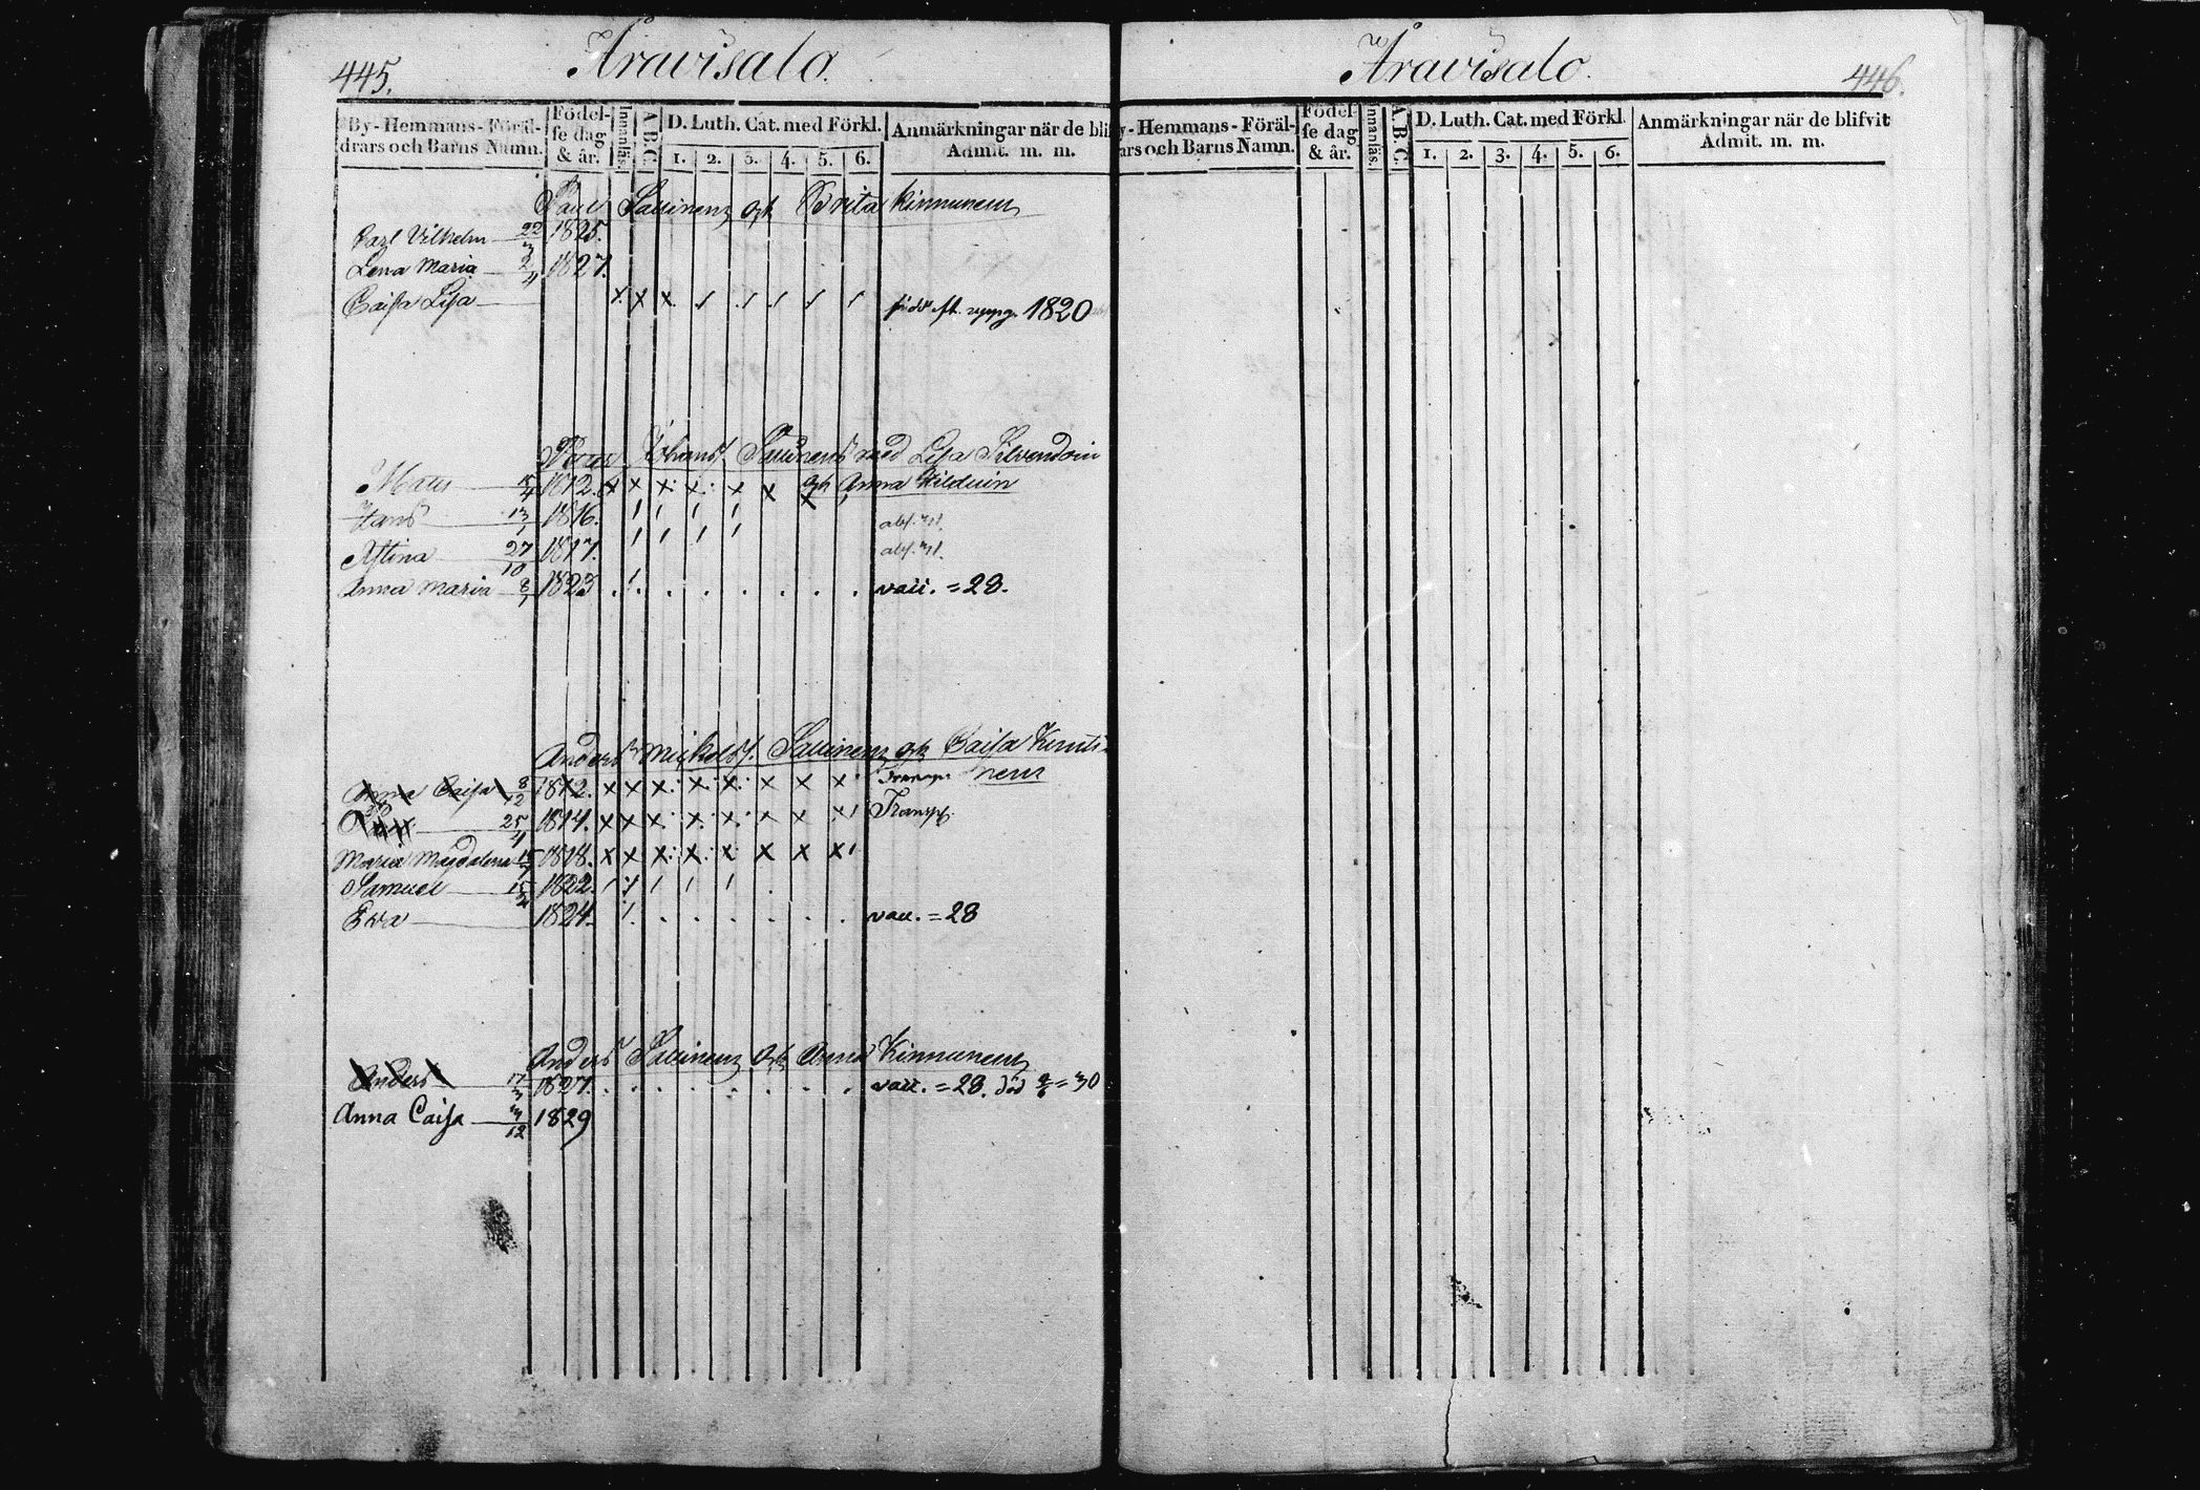 445.
Aravisalo.
By-Hemmans-Föräl-
drars och Barns Namn.
Födel-
se dag
& år.
Innanläs.
A.B.C.
D. Luth. Cat. med Förkl.
1. 2. 3. 4. 5. 6.
Anmärkningar när de bli
Admit. m. m.
Paul Sallinen och Brita Kinnunen
Carl Vilhelm 22/3 1825.
Lena Maria 2/4 1827.
Caisa Lisa x x x / / / / / född e. uppg. 1820
Johans. Sallinen med Lisa Silvendoin
Mats 1812. x x x x x x x och Anna
Hans 13/1 1816. / / / /
Stina 27/10 1817. / / / /
Anna Maria 8/1 1823 / vacc. = 28.
Anders Mickels. Sallinen och Caisa
nen
Anna Caisa 8/12 1812. x x x x x x x x
25/4 1814. x x x x x x x x / Transp.
Maria Magdalena 1818. x x x x x x x x /
Samuel 1822. / / / / /
Ewa 1824. / vacc. = 28
Anders Sallinen och Anna Kinnunen
Anders 17/3 1827. vacc. = 28. död = 30
Anna Caisa 1829
Aravisalo.
446.
y-Hemmans-Föräl-
ars och Barns Namn.
Födel-
se dag
& år.
Innanläs.
A.B.C.
D. Luth. Cat. med Förkl.
1. 2. 3. 4. 5. 6.
Anmärkningar när de blifvit
Admit. m. m.